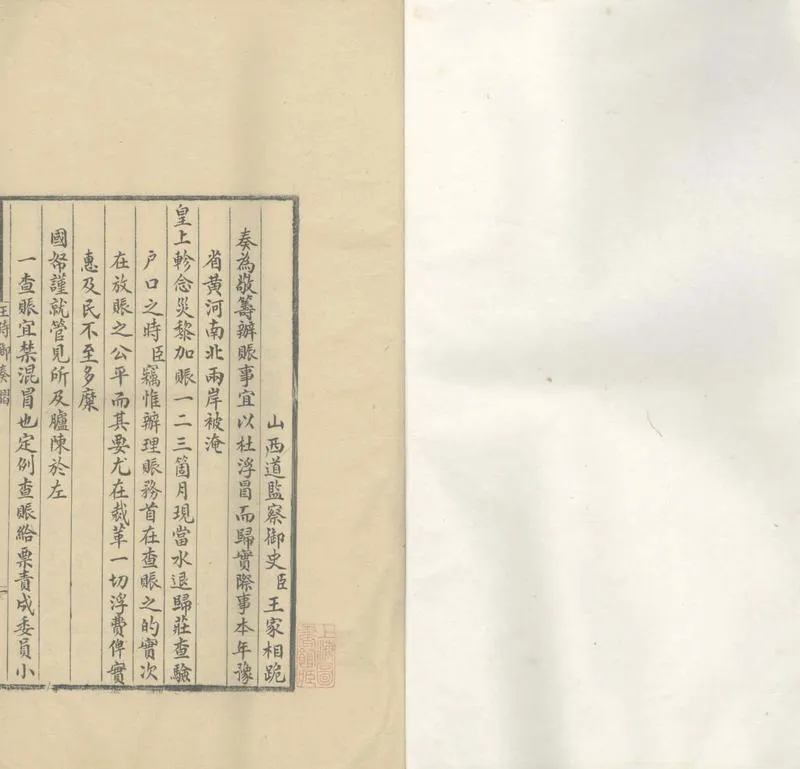 山西道監察御史臣王家相跪
奏為敬籌辦賬事宜以杜浮冒而歸實際事本年豫
省黃河南北兩岸被淹
皇上軫念災黎加賬一二三箇月現當水退歸莊查驗
戶口之時臣竊惟辦理賬務首在查賬之的實次
在放賬之公平而其要尤在裁革一切浮費俾實
惠及民不至多糜
國帑謹就管見所及臚陳於左
一查賬宜禁混冒也定例查賬給票責成委員小
王侍御奏摺
一
上海圖
書館藏